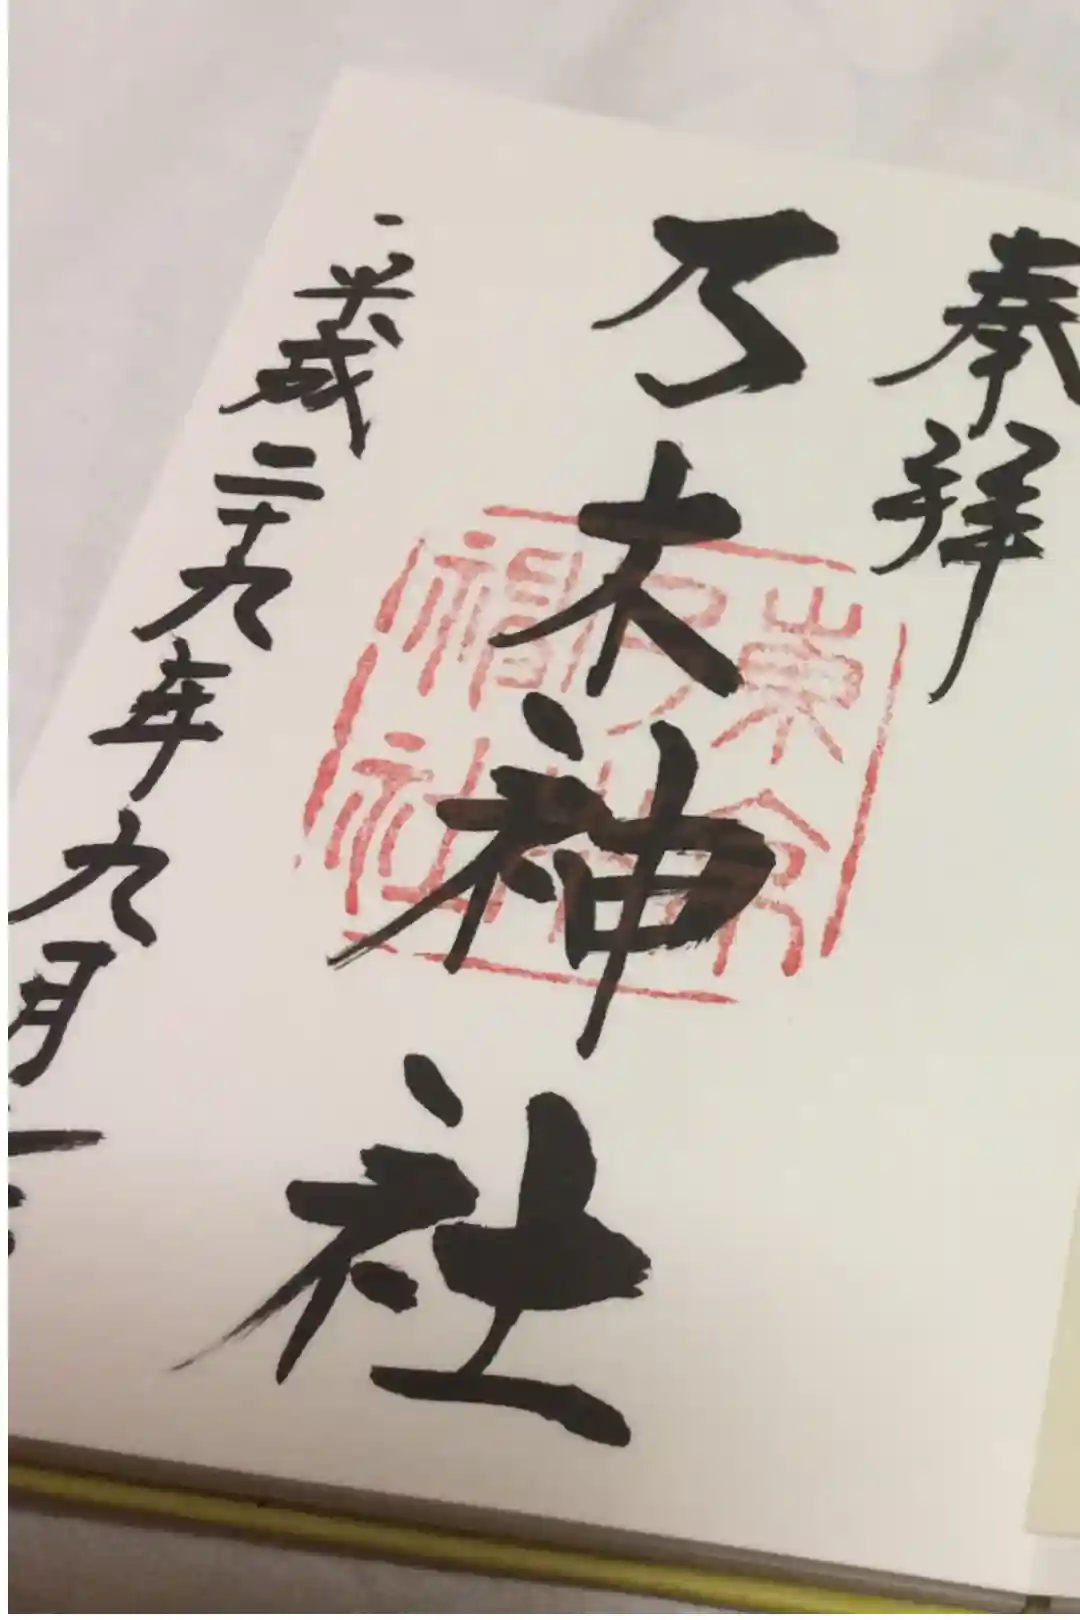 奉拝
乃木神社
東京
乃木
神社
平成二十九年九月